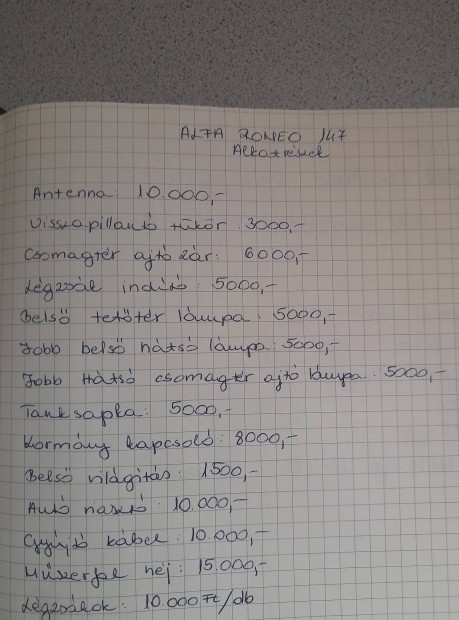 ALFA ROMEO 147
Alkatrészek
Antenna: 10.000,-
Visszapillantó tükör: 3000,-
Csomagtér ajtó zár: 6000,-
Légzsák indító: 5000,-
Belső tetőtér lámpa: 5000,-
Jobb belső hátsó lámpa: 5000,-
Jobb Hátsó csomagtér ajtó lámpa: 5000,-
Tanksapka: 5000,-
Kormány kapcsoló: 8000,-
Belső világítás: 1500,-
Autó riasztó: 10.000,-
Gyújtó kábel: 10.000,-
Műszerfal héj: 15.000,-
Légzsákok: 10.000 Ft/db